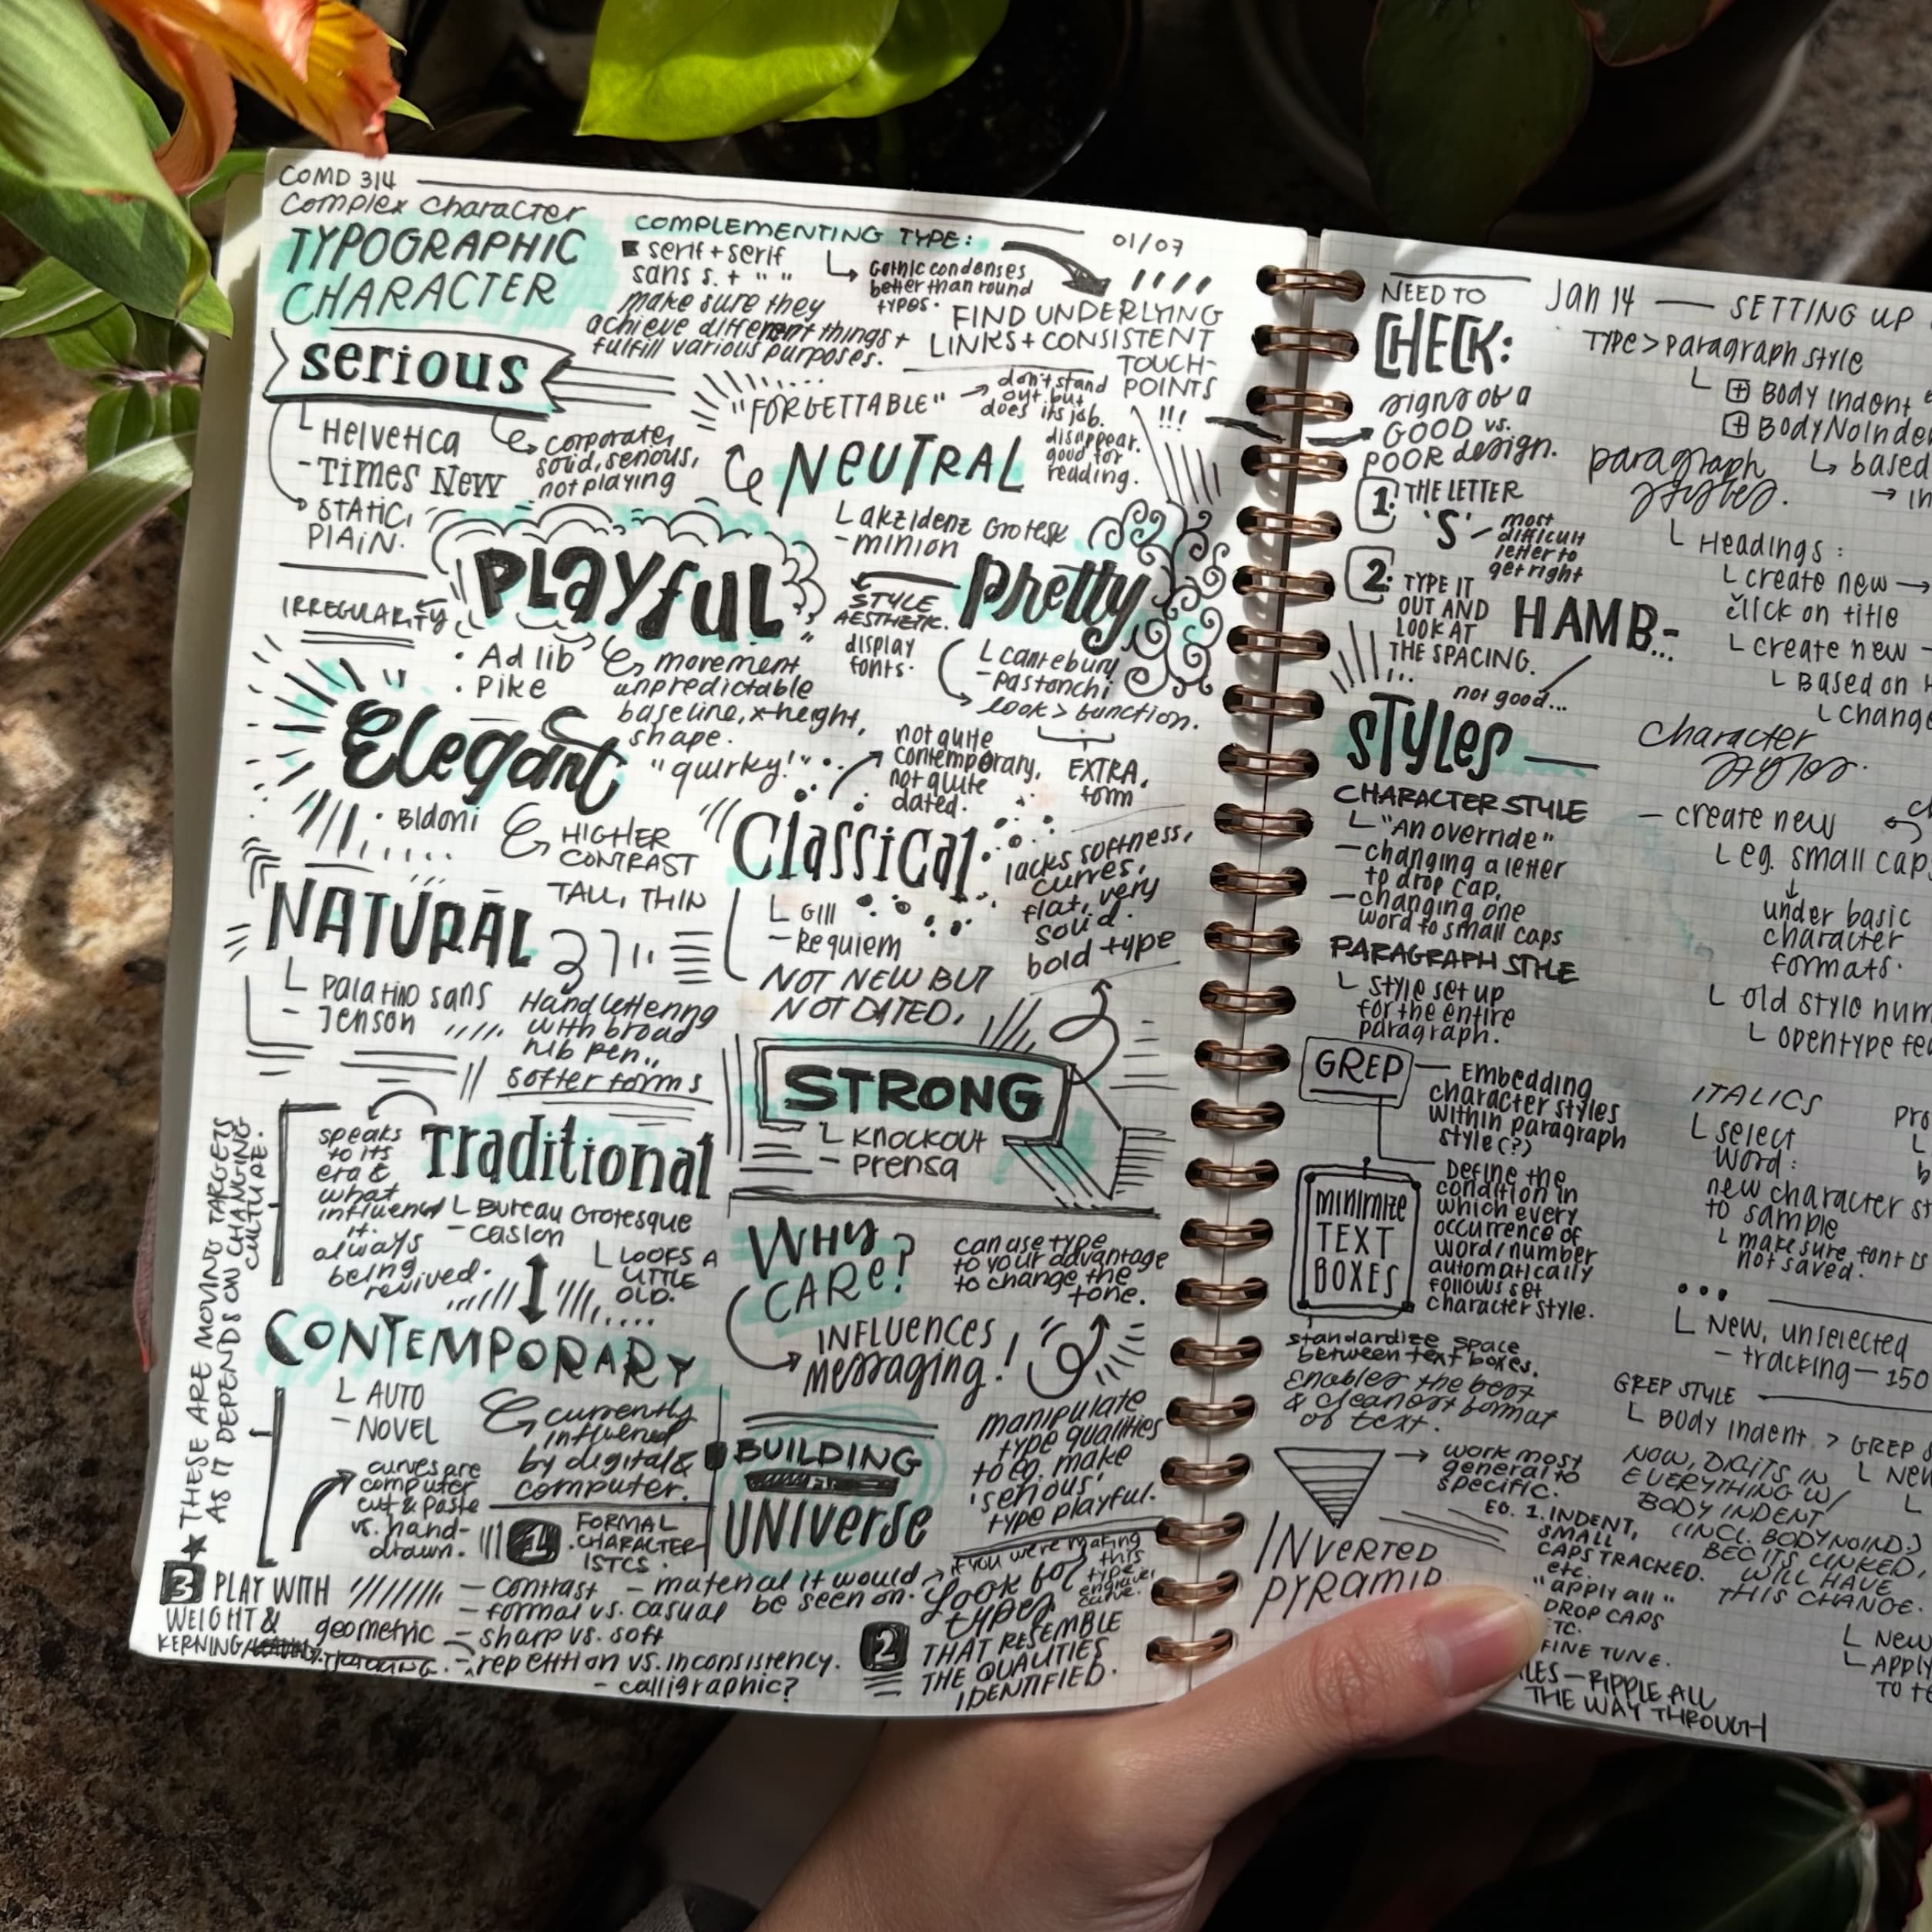 COMD 314
Complex Character
TYPOGRAPHIC
CHARACTER
COMPLEMENTING TYPE:
serif + serif
sans s. + " "
make sure they
achieve different things +
fulfill various purposes.
Gothic condenses
better than round
types.
01/07
FIND UNDERLYING
LINKS + CONSISTENT
TOUCH-
POINTS
!!!
serious
Helvetica
- Times New
STATIC,
PLAIN.
corporate,
solid, serious,
not playing
"FORGETTABLE"
don't stand
out but
does its job.
NEUTRAL
disappear.
good for
reading.
Akzidenz Grotesk
- minion
PLAYFUL
IRREGULARITY
• Ad lib
• Pike
movement
unpredictable
baseline, x-height,
shape.
"quirky!"
Pretty
STYLE
AESTHETIC.
display
fonts.
cantebury
- Pastonchi
look > function.
EXTRA,
form
Elegant
• Bldoni
HIGHER
CONTRAST
TALL, THIN
Classical
not quite
contemporary,
not quite
dated.
lacks softness,
curves,
flat, very
solid.
bold type
Gill
- Requiem
NOT NEW BUT
NOT DATED.
NATURAL
Palatino sans
- Jenson
Hand lettering
with broad
nib pen..
softer forms
STRONG
Knockout
- Prensa
Traditional
speaks
to its
era &
what
influenced
it.
always
being
revived.
Bureau Grotesque
- caslon
LOOKS A
LITTLE
OLD.
★ THESE ARE MOVING TARGETS
AS IT DEPENDS ON CHANGING
CULTURE.
CONTEMPORARY
AUTO
- NOVEL
currently
influenced
by digital &
computer.
curves are
computer
cut & paste
vs. hand-
drawn.
WHY
CARE?
can use type
to your advantage
to change the
tone.
INFLUENCES
messaging!
BUILDING
UNIVERSE
manipulate
type qualities
to eg. make
'serious'
type playful.
1 FORMAL
CHARACTER-
ISTCS.
- contrast
- formal vs. casual
geometric - sharp vs. soft
- repetition vs. inconsistency.
- calligraphic?
- material it would
be seen on.
if you were making
this
type
2 Look for
types
THAT RESEMBLE
THE QUALITIES
IDENTIFIED.
3 PLAY WITH
WEIGHT &
KERNING/
NEED TO
CHECK:
signs of a
GOOD vs.
POOR design.
1. THE LETTER
'S' - most
difficult
letter to
get right
2. TYPE IT
OUT AND
LOOK AT
THE SPACING.
HAMB-...
not good...
STYLES
CHARACTER STYLE
"An override"
- changing a letter
to drop cap,
- changing one
word to small caps
PARAGRAPH STYLE
style set up
for the entire
paragraph.
GREP
Embedding
character styles
within paragraph
style (?)
Define the
condition in
which every
occurrence of
word/number
automatically
follows set
character style.
minimize
TEXT
BOXES
standardize space
between text boxes.
Enables the best
& cleanest format
of text.
work most
general to
specific.
INVERTED
PYRAMID
EG. 1. INDENT,
SMALL
CAPS TRACKED.
etc.
"apply all"
DROP CAPS
ETC.
FINE TUNE.
- RIPPLE ALL
THE WAY THROUGH
Jan 14 — SETTING UP
TYPE > paragraph style
Body Indent
Body NoInden
paragraph
styles.
based
Headings:
create new →
click on title
create new -
Based on H
Change
Character
styles.
- create new
eg. small cap
under basic
character
formats.
old style num
opentype fea
ITALICS
select
word:
new character st
to sample
make sure font is
not saved.
pro
...
New, unselected
- tracking - 150
GREP STYLE
Body Indent > GREP S
New
NOW, DIGITS IN
EVERYTHING W/
BODY INDENT
(INCL. BODYNOIND)
BEC ITS LINKED,
WILL HAVE
THIS CHANGE.
New
APPLY
TO te